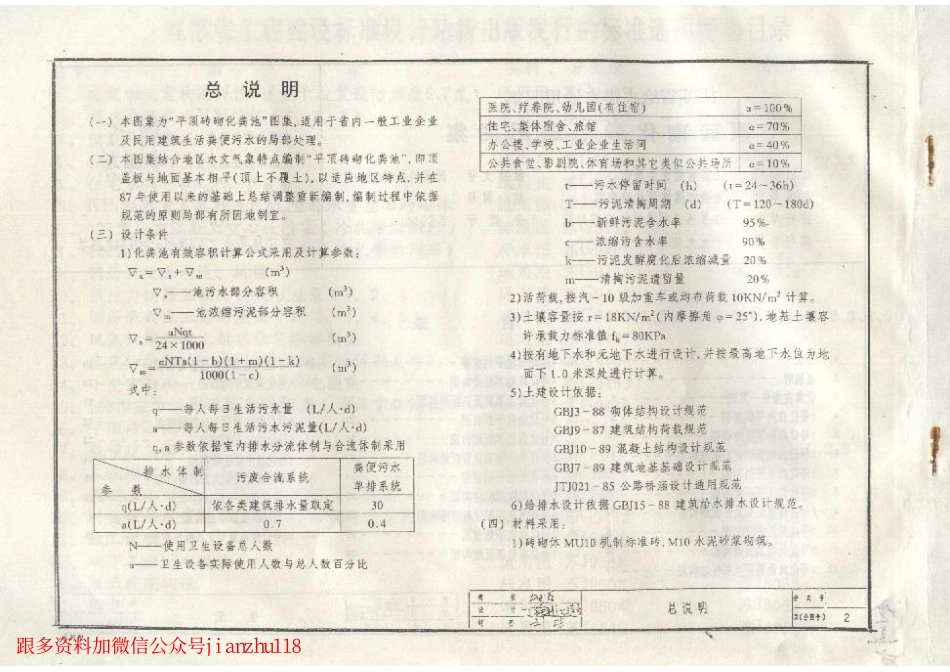 总说明
(一) 本图集为“平顶砖砌化粪池”图集,适用于省内一般工业企业
及民用建筑生活粪便污水的局部处理。
(二) 本图集结合地区水文气象特点编制“平顶砖砌化粪池”,即顶
盖板与地面基本相平(顶上不覆土),以适应地区特点,并在
87年使用以来的基础上总结调整重新编制,编制过程中依据
规范的原则局部有所因地制宜。
(三) 设计条件
1)化粪池有效容积计算公式采用及计算参数:
▽n=▽s+▽m (m³)
▽s——池污水部分容积 (m³)
▽m——池浓缩污泥部分容积 (m³)
▽s= αNqt / 24×1000 (m³)
▽m= αNTa(1-b)(1+m)(1-k) / 1000(1-c) (m³)
式中:
q——每人每日生活污水量 (L/人·d)
a——每人每日生活污水污泥量(L/人·d)
q,a参数依据室内排水分流体制与合流体制采用
排水体制 参数 污废合流系统 粪便污水单排系统
q(L/人·d) 依各类建筑排水量取定 30
a(L/人·d) 0.7 0.4
N——使用卫生设备总人数
α——卫生设备实际使用人数与总人数百分比
医院、疗养院、幼儿园(有住宿) α=100%
住宅、集体宿舍、旅馆 α=70%
办公楼、学校、工业企业生活间 α=40%
公共食堂、影剧院、体育场和其它类似公共场所 α=10%
t——污水停留时间 (h) (t=24~36h)
T——污泥清掏周期 (d) (T=120~180d)
b——新鲜污泥含水率 95%
c——浓缩污含水率 90%
k——污泥发酵腐化后浓缩减量 20%
m——清掏污泥遗留量 20%
2)活荷载,按汽-10级加重车或均布荷载10KN/m²计算。
3)土壤容量按r=18KN/m³(内摩擦角φ=25°),地基土壤容
许承载力标准值fk=80KPa
4)按有地下水和无地下水进行设计,并按最高地下水位为地
面下1.0米深处进行计算。
5)土建设计依据:
GBJ3-88 砌体结构设计规范
GBJ9-87 建筑结构荷载规范
GBJ10-89 混凝土结构设计规范
GBJ7-89 建筑地基基础设计规范
JTJ021-85 公路桥涵设计通用规范
6)给排水设计依据GBJ15-88 建筑给水排水设计规范。
(四) 材料采用:
1)砖砌体MU10机制标准砖、M10水泥砂浆砌筑。
总说明
2
跟多资料加微信公众号jianzhu118